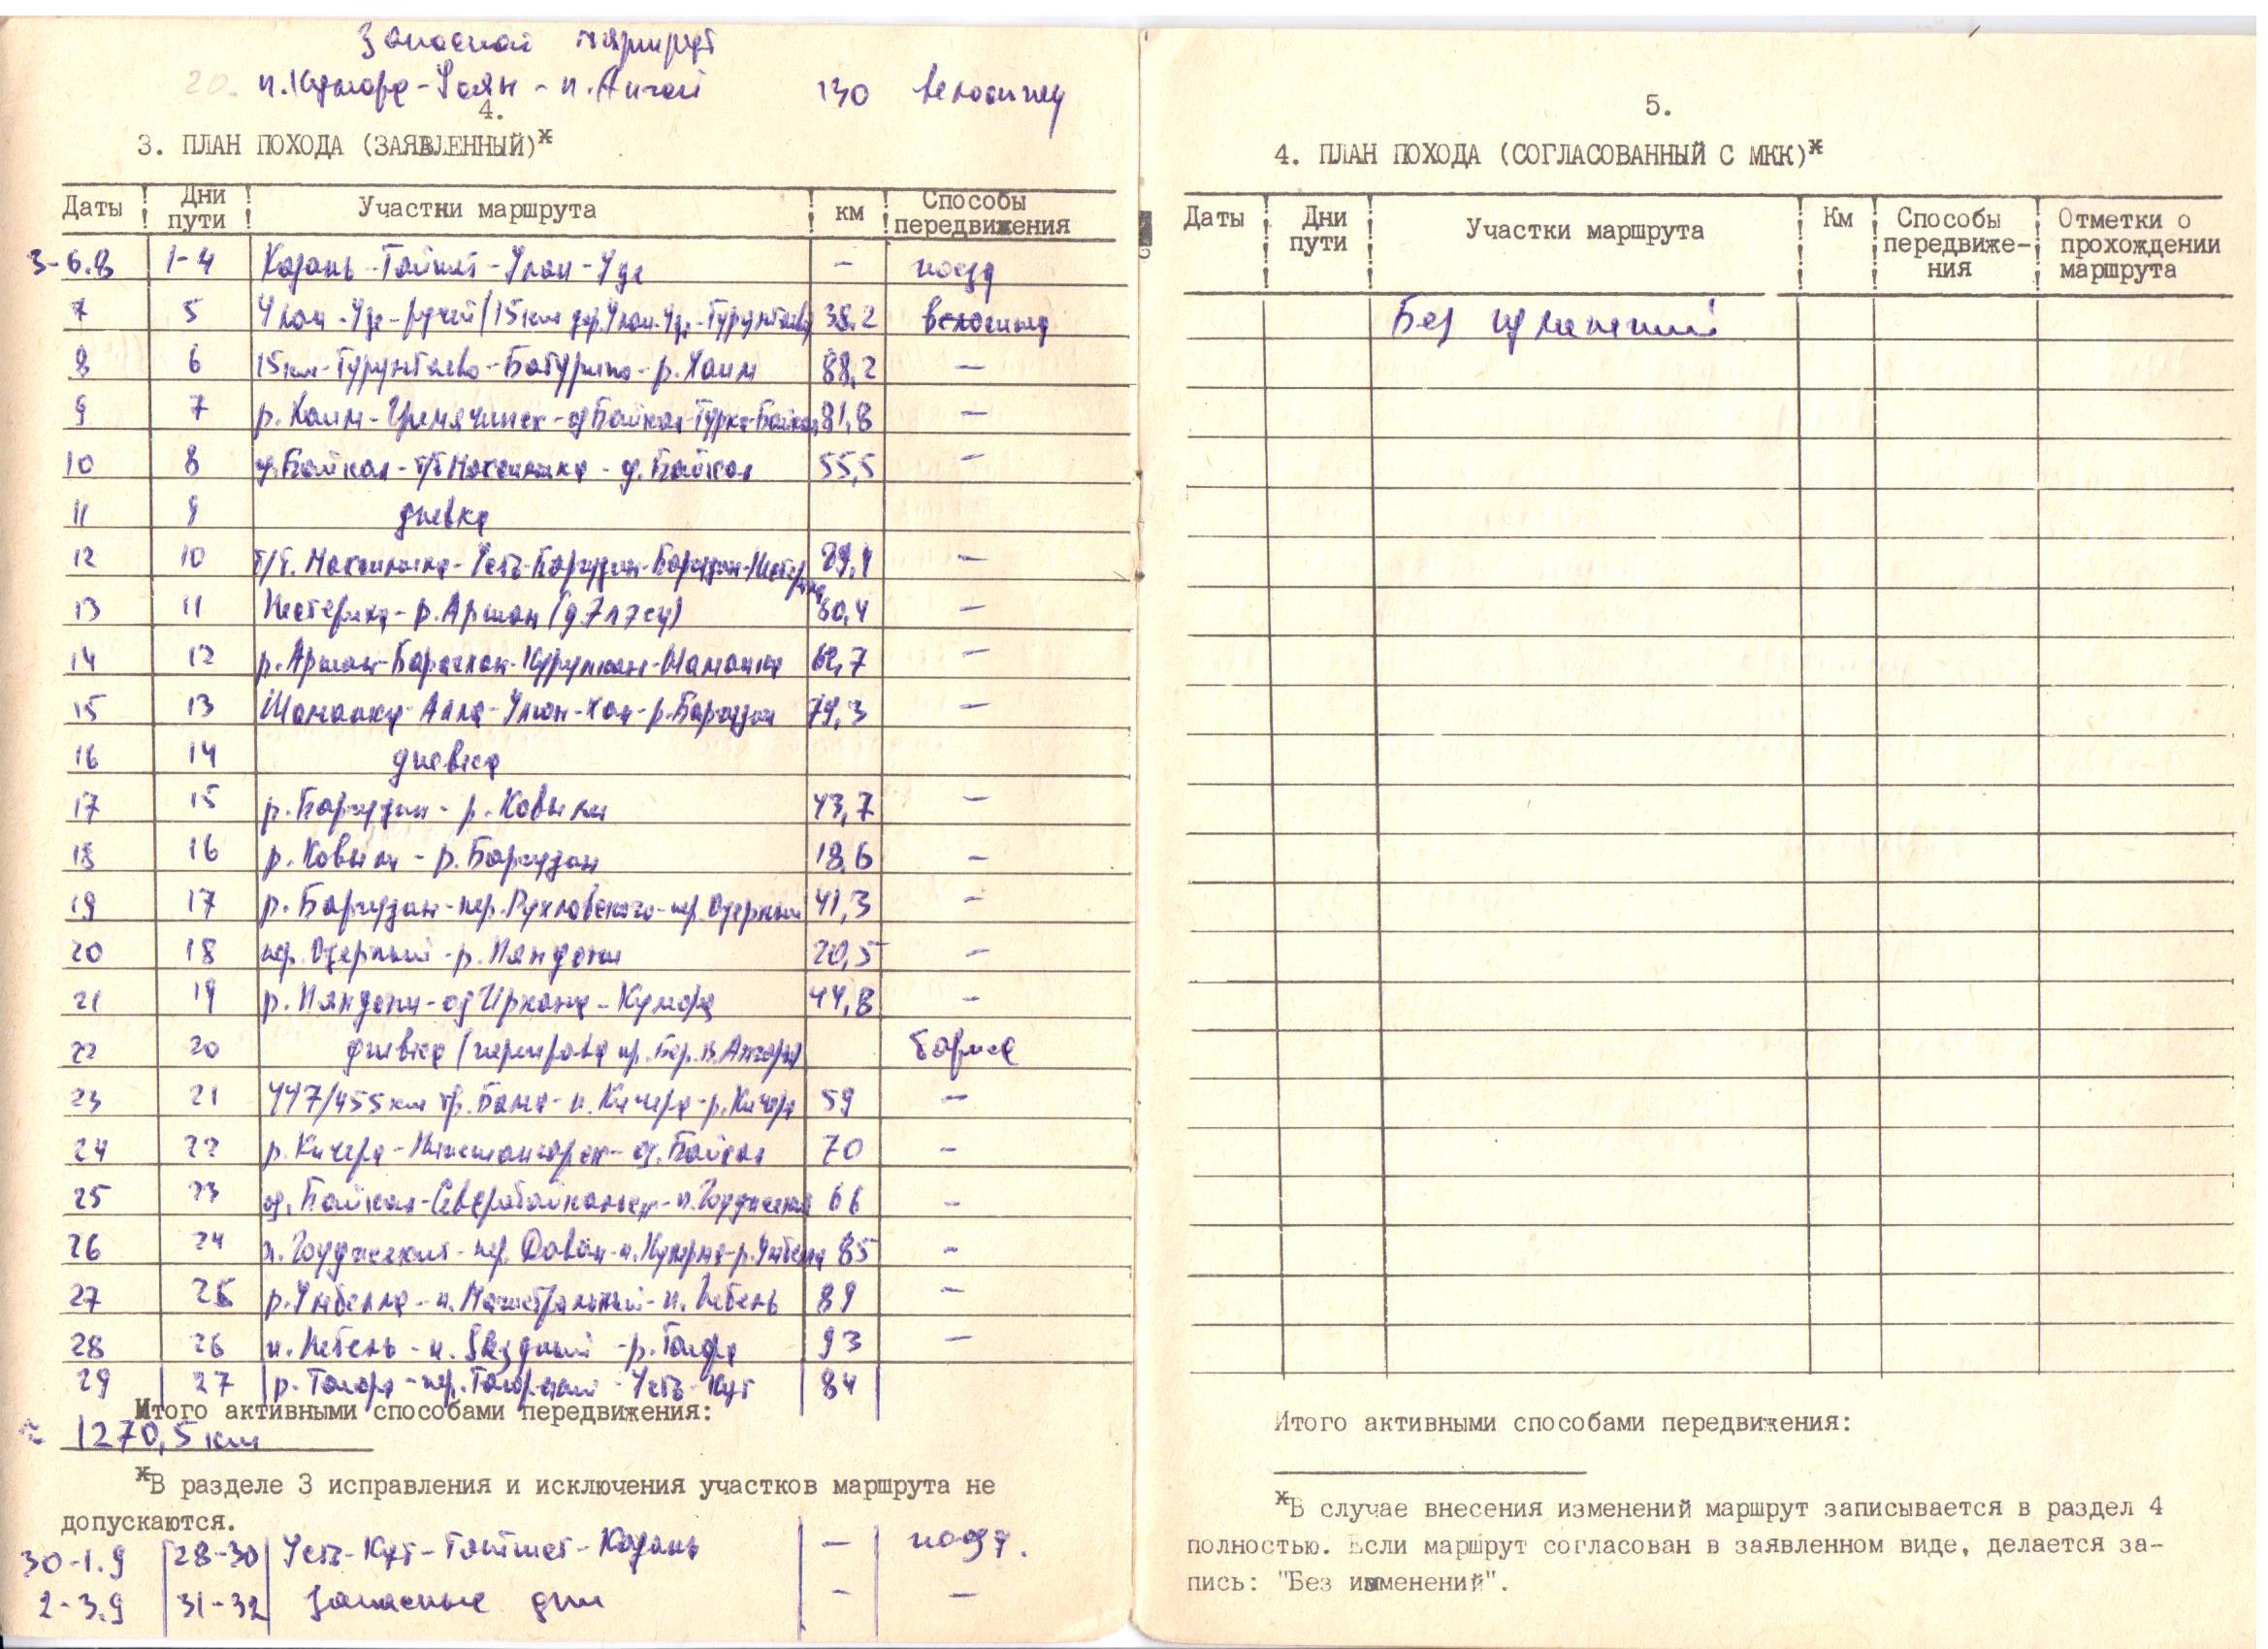 Запасной маршрут
20. п.Кумора-Уоян - п.Ангой 130 велосипед
4.
3. ПЛАН ПОХОДА (ЗАЯВЛЕННЫЙ)*
Даты Дни пути Участки маршрута км Способы передвижения
3-6.8 1-4 Казань-Тайшет-Улан-Удэ — поезд
7 5 Улан-Удэ-ручей (15км дор.Улан-Удэ-Турунтаево) 38,2 велосипед
8 6 15км-Турунтаево-Батурино-р.Хаим 88,2 —
9 7 р.Хаим-Гремячинск-оз.Байкал-Турка-Байкал 81,8 —
10 8 оз.Байкал-т/б Максимиха-оз.Байкал 55,5 —
11 9 дневка
12 10 т/б.Максимиха-Усть-Баргузин-Баргузин-Нестериха 89,4 —
13 11 Нестериха-р.Аршан (д.7 лэсу) 80,4 —
14 12 р.Аршан-Барагхан-Курумкан-Шаманка 62,7 —
15 13 Шаманка-Алла-Улюн-Хан-р.Баргузин 79,3 —
16 14 дневка
17 15 р.Баргузин - р.Ковыли 43,7 —
18 16 р.Ковыли - р.Баргузин 18,6 —
19 17 р.Баргузин-пер.Рухловского-пер.Озерный 41,3 —
20 18 пер.Озерный-р.Няндони 20,5 —
21 19 р.Няндони-оз.Иркана-Кумора 44,8 —
22 20 дневка (переправа пр.бер.В.Ангары) баржа
23 21 447/455км тр.Бама-п.Кичера-р.Кичера 59 —
24 22 р.Кичера-Нижнеангарск-оз.Байкал 70 —
25 23 оз.Байкал-Северобайкальск-п.Гоуджекит 66 —
26 24 п.Гоуджекит-пер.Даван-п.Кунерма-р.Умбелла 85 —
27 25 р.Умбелла-п.Магистральный-п.Небель 89 —
28 26 п.Небель-п.Звездный-р.Таюра 93 —
29 27 р.Таюра-пер.Таюрский-Усть-Кут 84
Итого активными способами передвижения:
≈ 1270,5 км
*В разделе 3 исправления и исключения участков маршрута не
допускаются.
30-1.9 28-30 Усть-Кут-Тайшет-Казань — поезд.
2-3.9 31-32 Запасные дни — —
5.
4. ПЛАН ПОХОДА (СОГЛАСОВАННЫЙ С МКК)*
Даты Дни пути Участки маршрута Км Способы передвиже-ния Отметки о прохождении маршрута
Без изменений
Итого активными способами передвижения:
*В случае внесения изменений маршрут записывается в раздел 4
полностью. Если маршрут согласован в заявленном виде, делается за-
пись: "Без изменений".